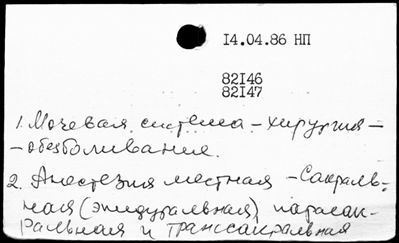 14.04.86 НП
82146
82147
1. Мочевая система - хирургия -
- обезболивание.
2. Анестезия местная - Сакраль-
ная (эпидуральная), парасак-
ральная и транссакральная